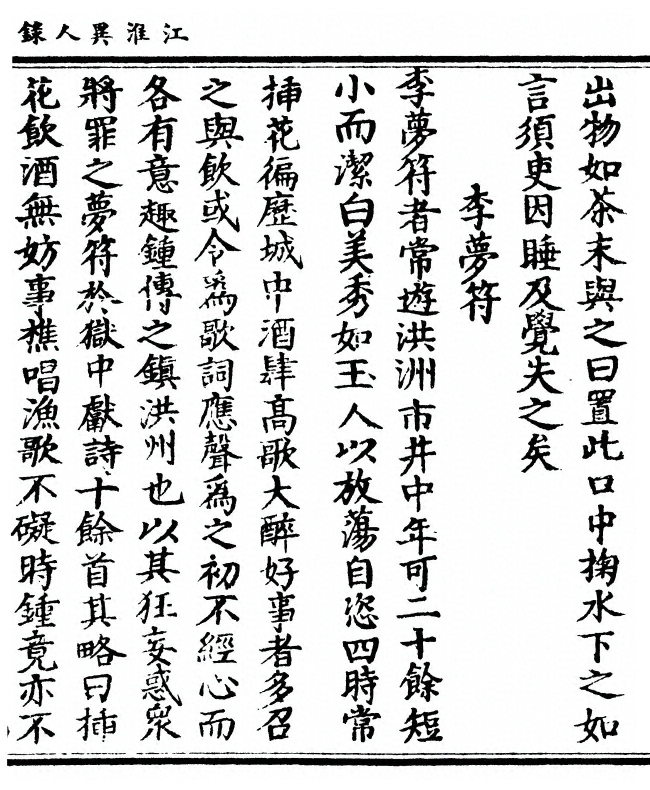 江淮異人錄
出物如茶末與之曰置此口中掬水下之如
言須吏因睡及覺失之矣
李夢符
李夢符者常遊洪洲市井中年可二十餘短
小而潔白美秀如玉人以放蕩自恣四時常
揷花徧歷城中酒肆高歌大醉好事者多召
之與飲或令爲歌詞應聲爲之初不經心而
各有意趣鍾傳之鎮洪州也以其狂妄惑衆
將罪之夢符於獄中獻詩十餘首其略曰揷
花飲酒無妨事樵唱漁歌不礙時鍾竟亦不